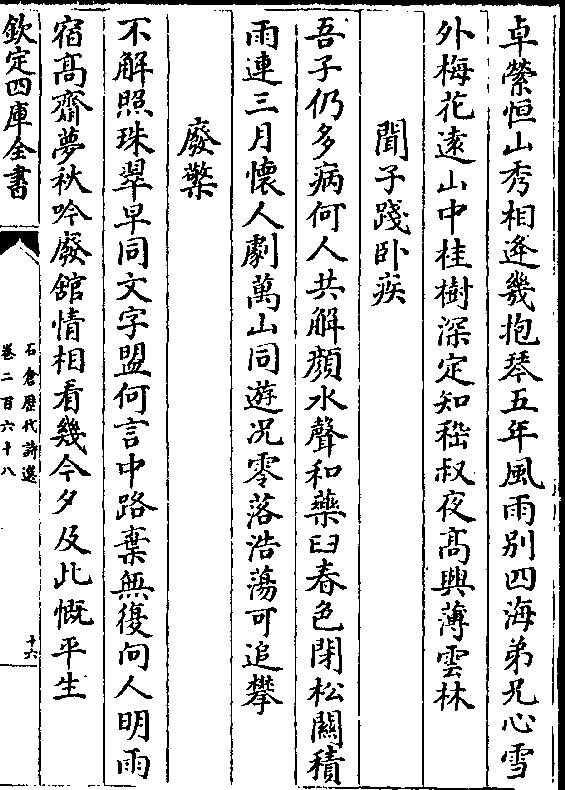 卓縈恒山秀相逢幾抱琴五年風雨别四海弟兄心雪
外梅花逺山中桂樹深定知嵇叔夜髙興薄雲林
聞子踐卧疾
吾子仍多病何人共解顔水聲和藥臼春色閉松闗積
雨連三月懐人劇萬山同遊况零落浩蕩可追攀
廢檠
不解照珠翠早同文字盟何言中路棄無復向人明雨
宿髙齋夢秋吟廢館情相看幾今夕及此慨平生
欽定四庫全書
石倉歴代詩選
卷二百六十八
十六